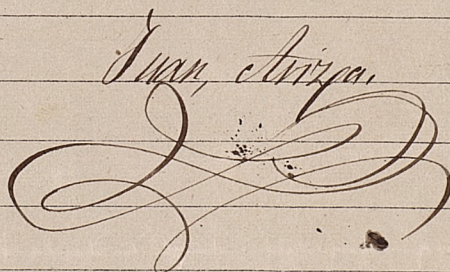 Juan, Arizpa.